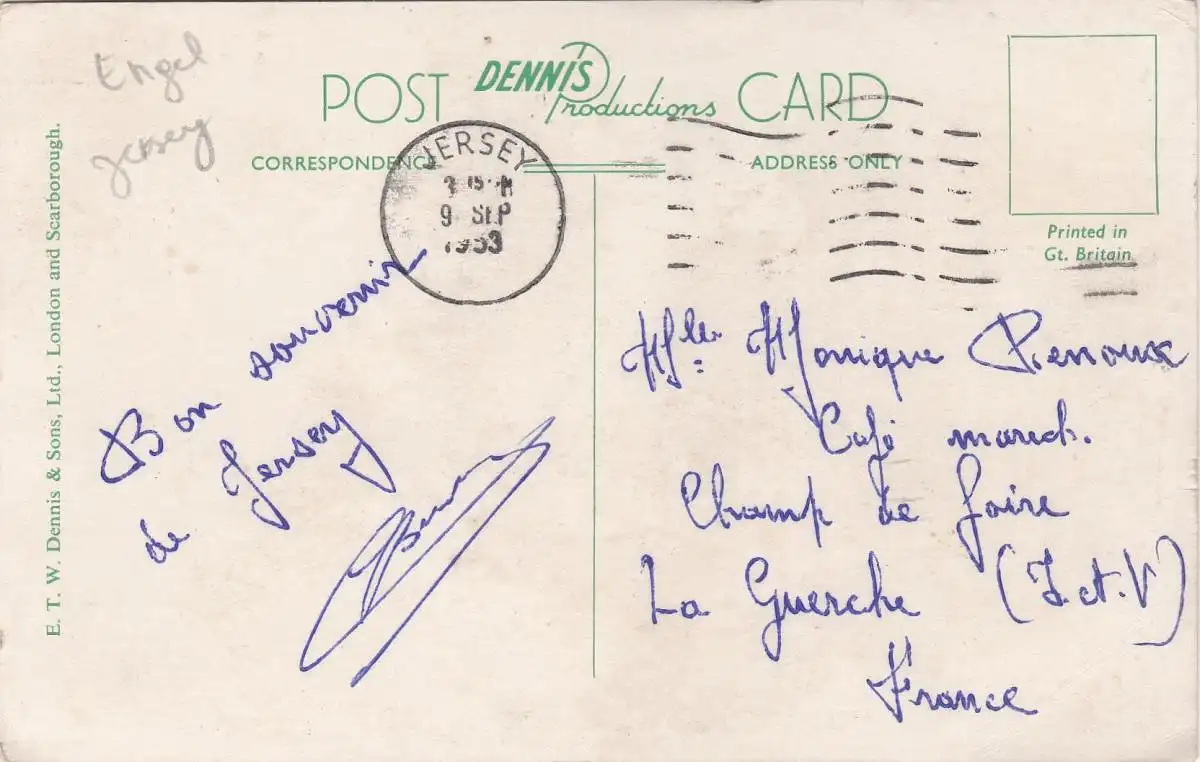 Engel
Jersey
POST DENNIS Productions CARD
CORRESPONDENCE
ADDRESS ONLY
JERSEY
9 SEP
1953
Printed in
Gt. Britain
E. T. W. Dennis & Sons, Ltd., London and Scarborough.
Bon souvenir
de Jersey
Mlle. Monique Renoux
Café march.
Champ de foire
La Guerche (I.et.V)
France